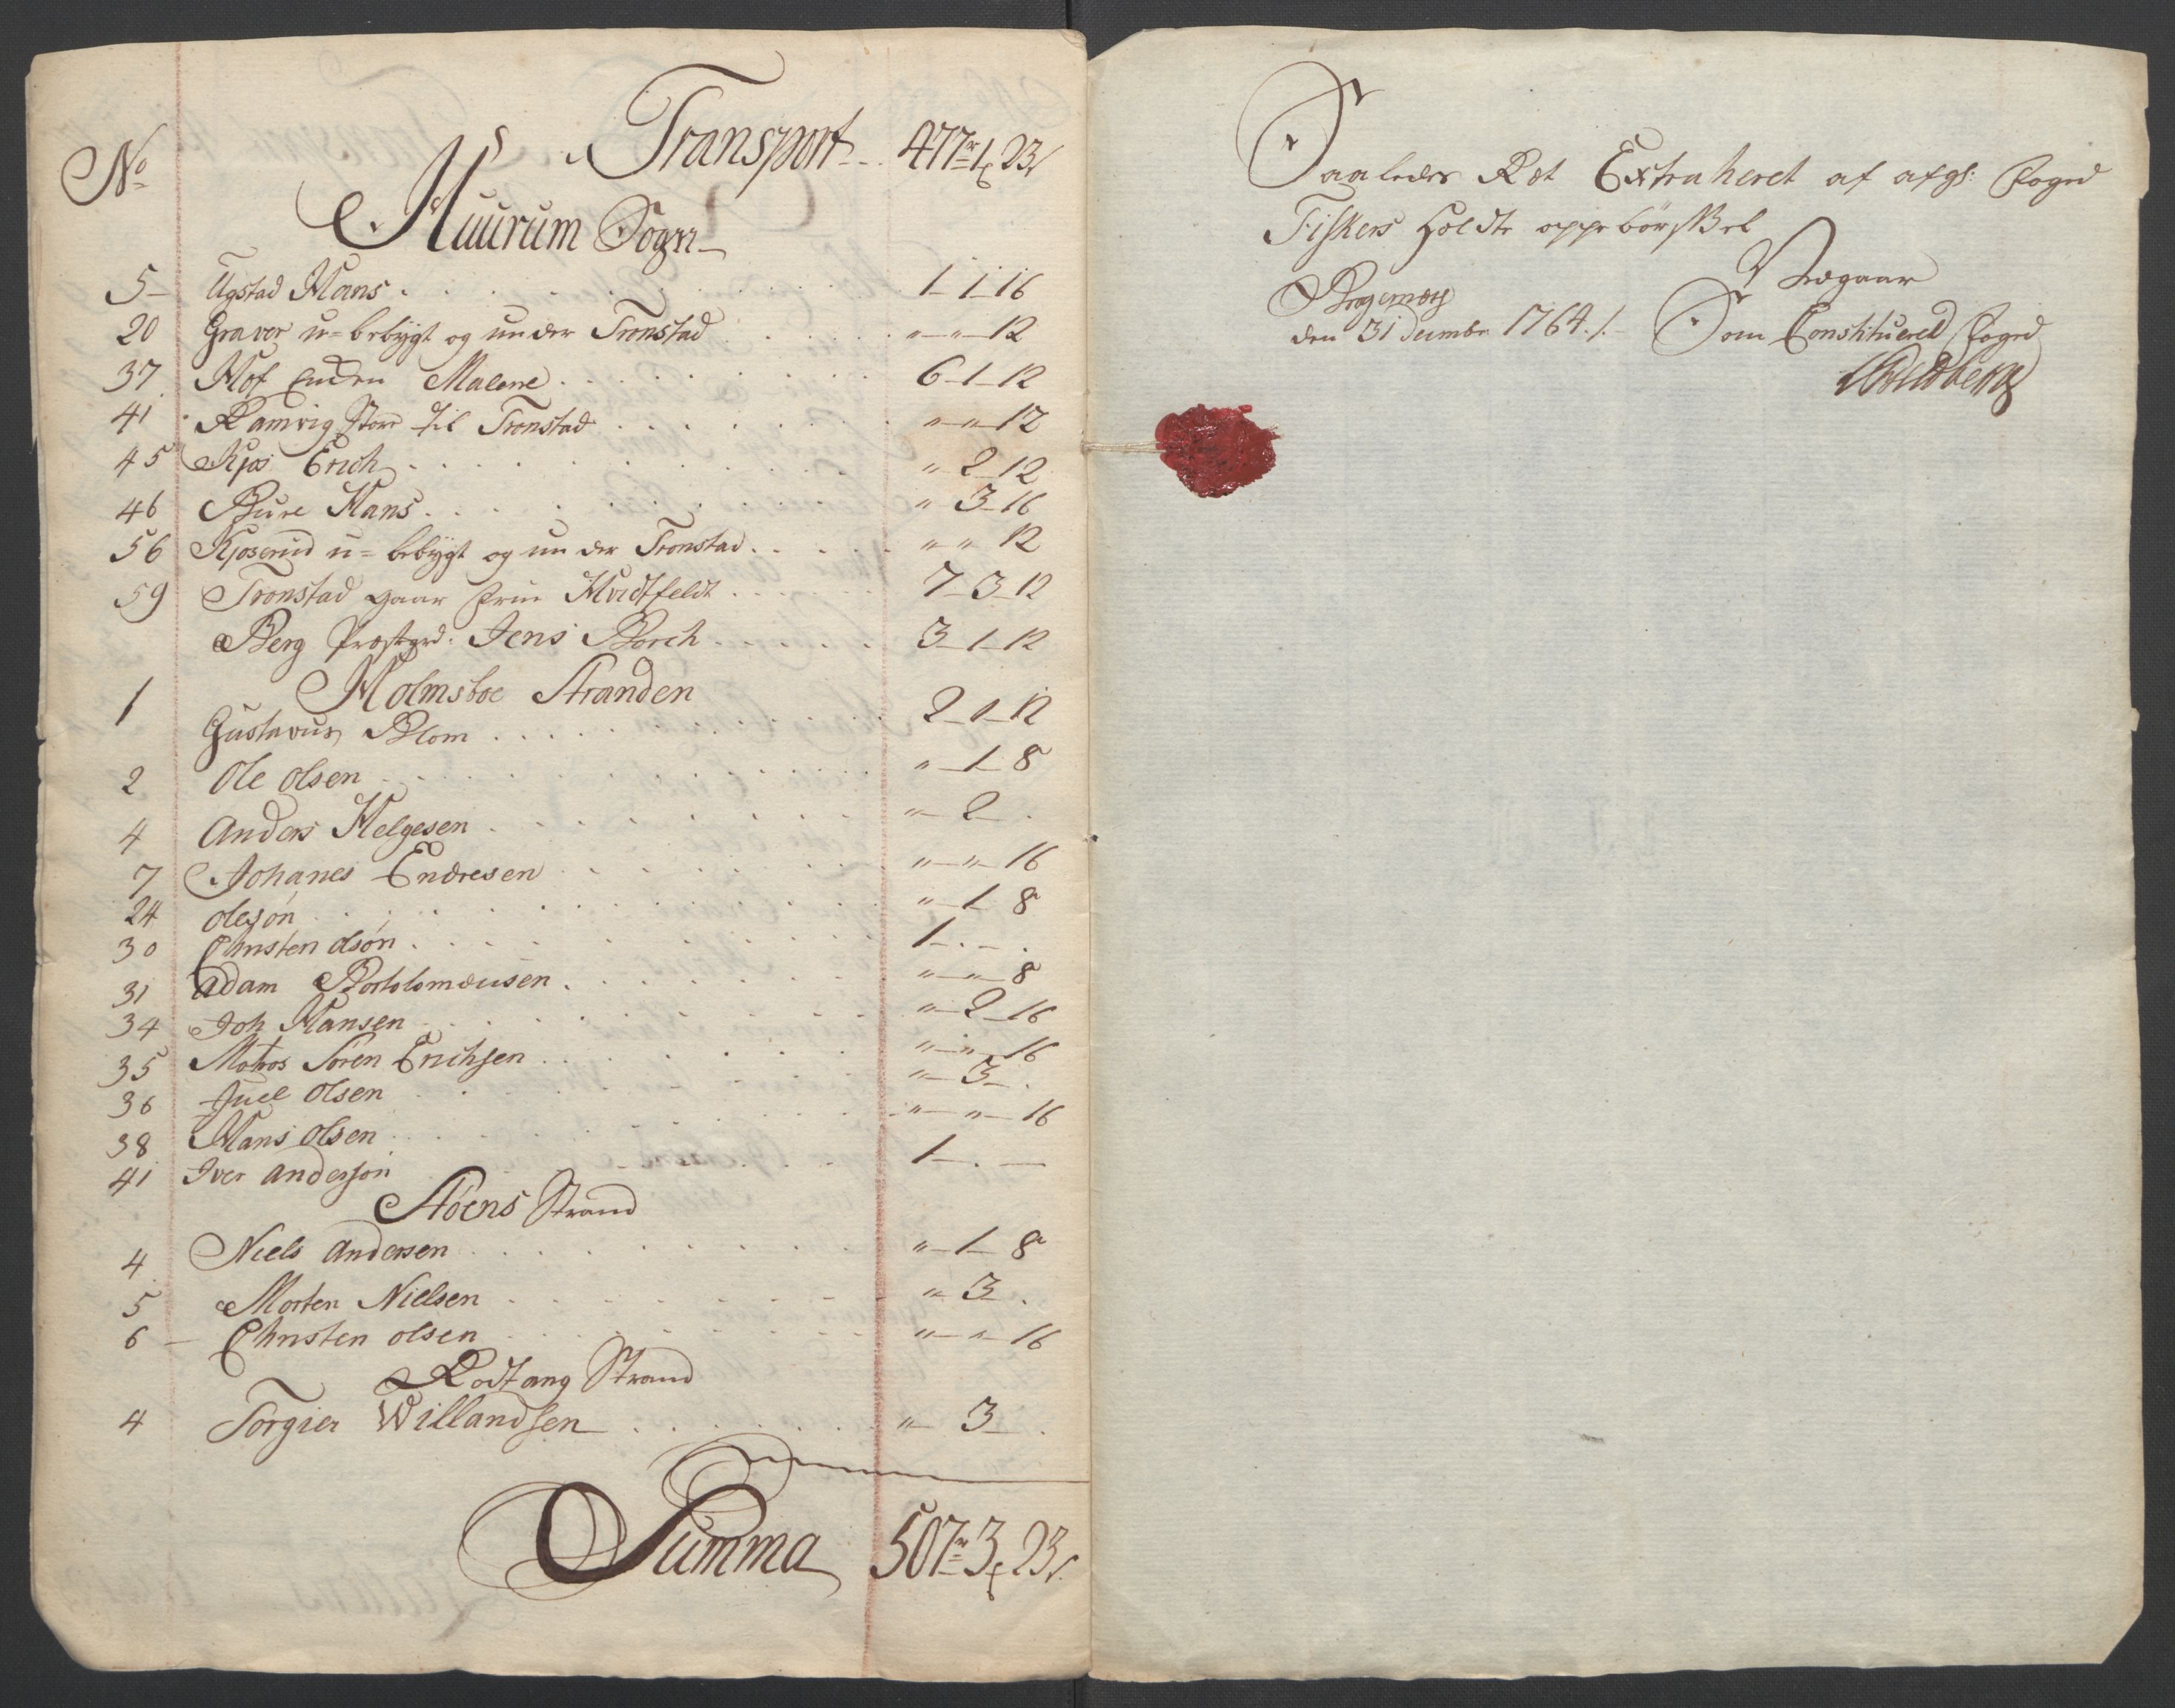 Transport 477r 1 23s
No
Huurum Sogn
5 Ugstad Hans 1 1 16
20 Graver u=bebygt og under Tronstad " " 12
37 Hof Enken Malene 6 1 12
41 Ramvig Store til Tronstad " " 12
45 Kjos Erich " 2 12
46 Bure Hans " 3 16
56 Kjoserud u=bebygt og under Tronstad " " 12
59 Tronstad gaar Frue Hvidtfeldt 7 3 12
Berg Præstgrd: Jens Borch 3 1 12
Holmsboe Stranden
1 Gustavus Blom 2 1 12
2 Ole Olsen " 1 8
4 Anders Helgesen " 2 .
7 Johanes Endresen " " 16
24 Olesøn " 1 8
30 Christen Olsøn 1 . .
31 Adam Bortolomæusen " " 8
34 Joh Hansen " 2 16
35 Matros Søren Erichsen " " 16
36 Juel Olsen " 3 .
38 Hans Olsen " " 16
41 Iver Andersøn 1 . _
Støens Strand
4 Niels Andersen " 1 8
5 Morten Nielsen " 3 .
6 Christen Olsen " " 16
Rodtang Strand
4 Torgier Willandsen " 3 .
Summa 507r 3 23s
Saaledes Ræt Extraheret af afgl: Foged
Fiskers Holdte oppebørsel
Bragernæs
Nægaar
den 31 decembr 1764 /. Som Constitueret Foged